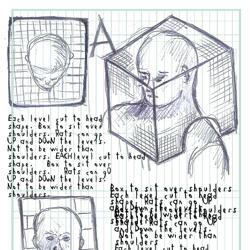 A
Each level cut to head
shape. Box to sit over
shoulders. Rats can go
UP and DOWN the levels.
Not to be wider than
shoulders. EACH level cut to head
shape. Box to sit over
shoulders. Rats can go
UP and DOWN the levels.
Not to be wider than
shoulders.
Box to sit over shoulders
shape. Rats can go UP
and DOWN the levels.
Not to be wider than
shoulders
Each level cut to head